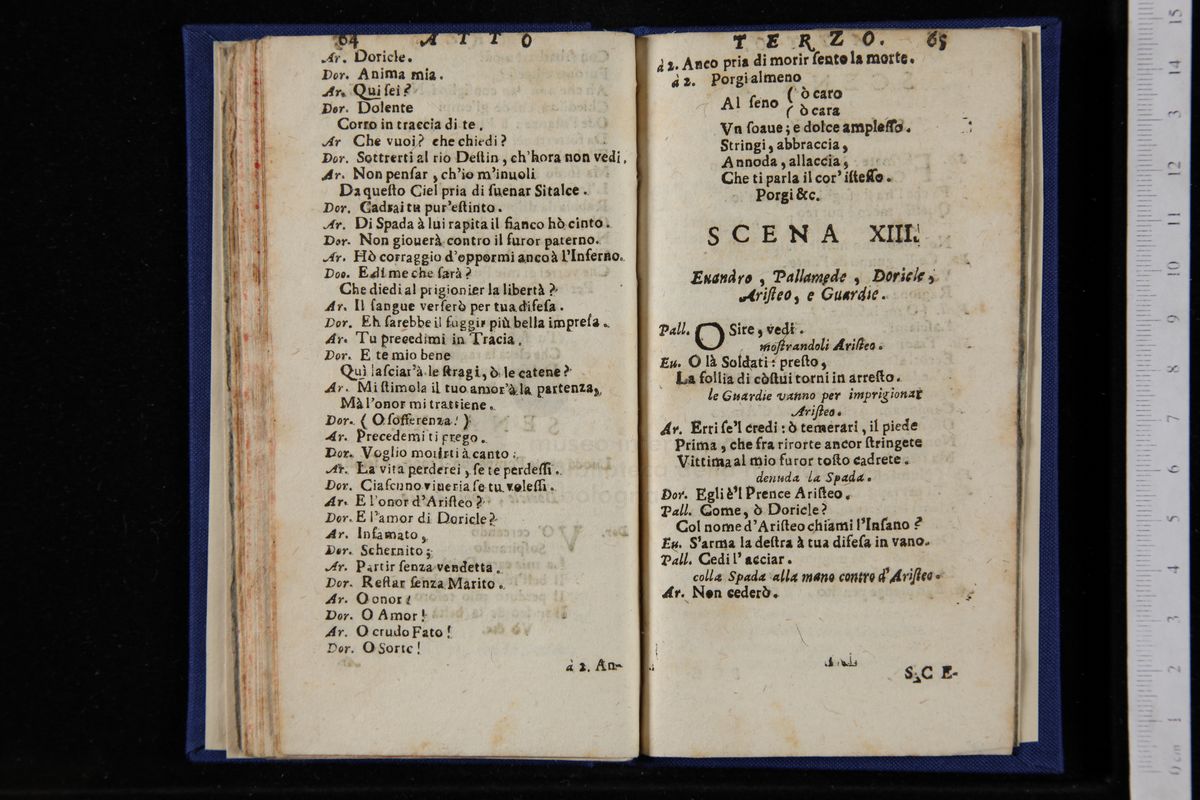 64 ATTO
Ar. Doricle.
Dor. Anima mia.
Ar. Qui ſei?
Dor. Dolente
Corro in traccia di te.
Ar Che vuoi? che chiedi?
Dor. Sottrerti al rio Deſtin, ch'hora non vedi.
Ar. Non penſar, ch'io m'inuoli
Da queſto Ciel pria di ſuenar Sitalce.
Dor. Cadrai tu pur'eſtinto.
Ar. Di Spada à lui rapita il fianco hò cinto.
Dor. Non giouerà contro il furor paterno.
Ar. Hò corraggio d'oppormi anco à l'Inferno.
Doo. E di me che ſarà?
Che diedi al prigionier la libertà?
Ar. Il ſangue verſerò per tua difeſa.
Dor. Eh ſarebbe il fuggir più bella impreſa.
Ar. Tu precedimi in Tracia.
Dor. E te mio bene
Quì laſciar'à le ſtragi, ò le catene?
Ar. Mi ſtimola il tuo amor'à la partenza,
Mà l'onor mi trattiene.
Dor. (O ſofferenza!)
Ar. Precedemi ti prego.
Dor. Voglio morirti à canto.
Ar. La vita perderei, ſe te perdeſſi.
Dor. Ciaſcuno viueria ſe tu voleſſi.
Ar. E l'onor d'Ariſteo?
Dor. E l'amor di Doricle?
Ar. Infamato,
Dor. Schernito;
Ar. Partir ſenza vendetta.
Dor. Reſtar ſenza Marito.
Ar. O onor!
Dor. O Amor!
Ar. O crudo Fato!
Dor. O Sorte!
à 2. An-
TERZO. 65
à 2. Anco pria di morir ſento la morte.
à 2. Porgi almeno
Al ſeno ( ò caro
( ò cara
Vn ſoaue; e dolce ampleſſo.
Stringi, abbraccia,
Annoda, allaccia,
Che ti parla il cor' iſteſſo.
Porgi &c.
SCENA XIII.
Euandro, Pallamede, Doricle,
Ariſteo, e Guardie.
Pall. O Sire, vedi.
moſtrandoli Ariſteo.
Eu. O là Soldati: preſto,
La follia di còſtui torni in arreſto.
le Guardie vanno per imprigionar
Ariſteo.
Ar. Erri ſe'l credi: ò temerari, il piede
Prima, che fra rirorte ancor ſtringete
Vittima al mio furor toſto cadrete.
denuda la Spada.
Dor. Egli è'l Prence Ariſteo.
Pall. Come, ò Doricle?
Col nome d'Ariſteo chiami l'Inſano?
Eu. S'arma la deſtra à tua difeſa in vano.
Pall. Cedi l'acciar.
colla Spada alla mano contro d'Ariſteo.
Ar. Non cederò.
SCE-
0 cm 1 2 3 4 5 6 7 8 9 10 11 12 13 14 15